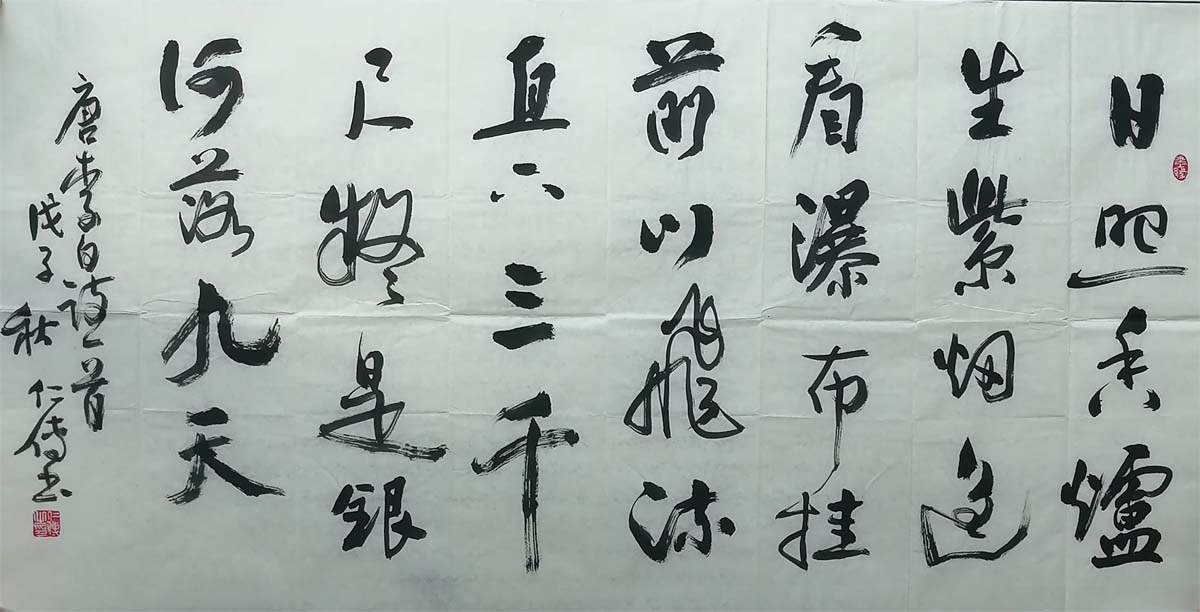 日照香爐
生紫烟遥
看瀑布挂
前川飛流
直下三千
尺疑是銀
河落九天
唐李白诗一首
戊子秋仁傳书